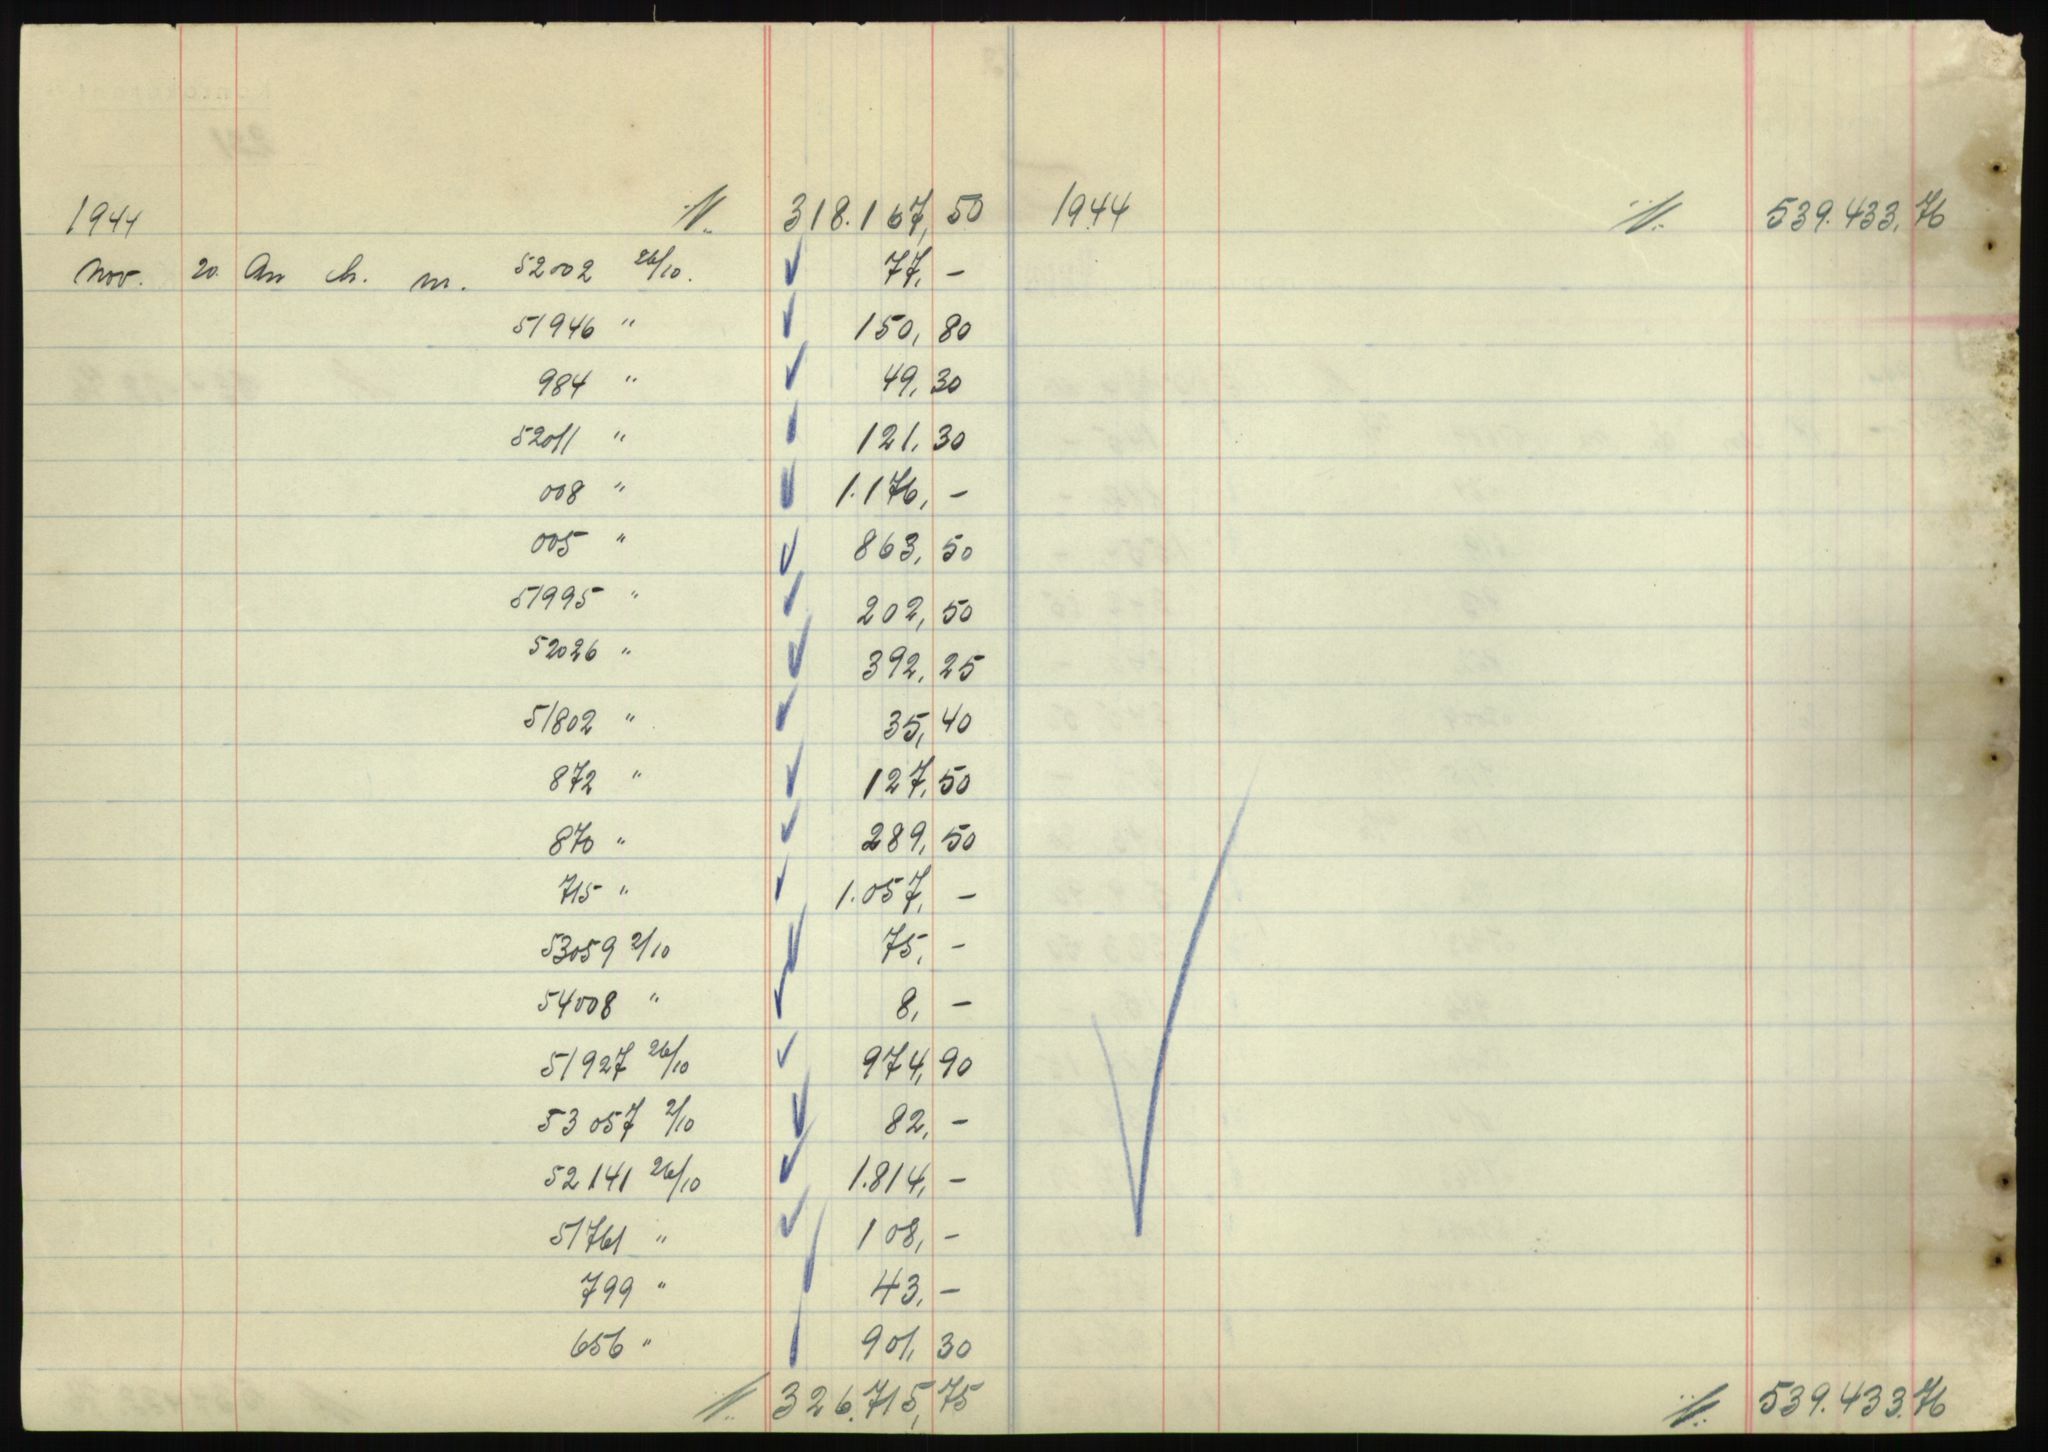 318.167,50 1944 539.433,76
1944
Nov. 20. An h. m. 52002 26/10. 77,-
51946 " 150,80
984 " 49,30
52011 " 121,30
008 " 1.176,-
005 " 863,50
51995 " 202,50
52026 " 392,25
51802 " 35,40
872 " 127,50
870 " 289,50
715 " 1.057,-
53059 2/10 75,-
54008 " 8,-
51927 26/10 974,90
53057 2/10 82,-
52141 26/10 1.814,-
51761 " 108,-
799 " 43,-
656 " 901,30
326.715,75 539.433.76